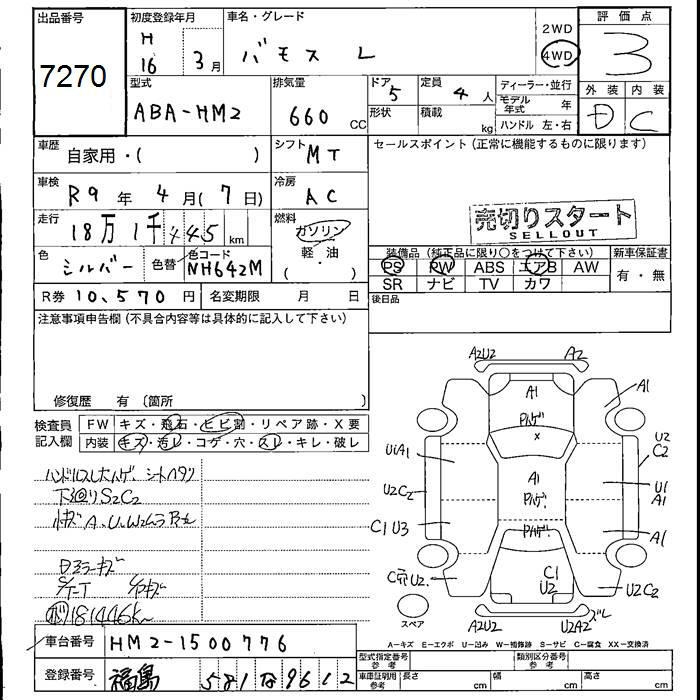 出品番号
7270
初度登録年月
H
16 3月
車名・グレード
バモス L
2WD
4WD
評価点
3
型式
ABA-HM2
排気量
660 CC
ドア 5
形状
定員 4 人
積載 kg
ディーラー・並行
モデル年式 年
ハンドル 左・右
外装 内装
D C
車歴
自家用・( )
シフト
MT
セールスポイント(正常に機能するものに限ります)
車検
R9 年 4 月(7 日)
冷房
AC
走行
18万1千445 km
燃料
ガソリン
軽・油
( )
売切りスタート
SELLOUT
色
シルバー
色替
色コード
NH642M
装備品(純正品に限り○をつけて下さい)
PS PW ABS エアB AW
SR ナビ TV カワ
新車保証書
有・無
R券 10,570 円
名変期限 月 日
後日品
注意事項申告欄(不具合内容等は具体的に記入して下さい)
修復歴 有(箇所 )
検査員
記入欄
FW キズ・飛石・ヒビ割・リペア跡・X要
内装 キズ・汚レ・コゲ・穴・スレ・キレ・破レ
シートヘタリ
下廻りS2C2
181446k
A2U2 A2
A1 A1
X
UiA1
U2
C2
U2C2
A1
U1
A1
C1U3
A1
U2.
C1
U2
U2C2
スペア
U2A2
ズレ
A-キズ E-エクボ U-凹み W-補修跡 S-サビ C-腐食 XX-交換済
車台番号
HM2-1500776
登録番号
福島 581 9612
型式指定番号
参考
類別区分番号
参考
車庫証明用
参考
長さ cm 幅 cm 高さ cm